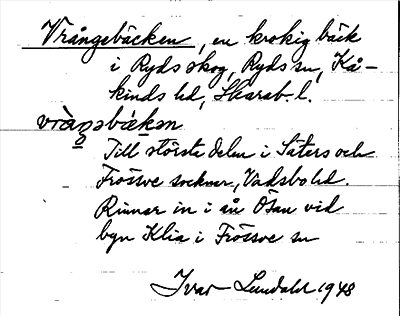 Vrångebäcken, en krokig bäck
i Ryds skog, Ryds sn, Kå-
kinds hd, Skarab. l.
vràŋəbækən
Till största delen i Säters och
Frösve socknar, Vadsbo hd.
Rinner in i ån Ösan vid
byn Klia i Frösve sn
Ivar Lundahl 1948